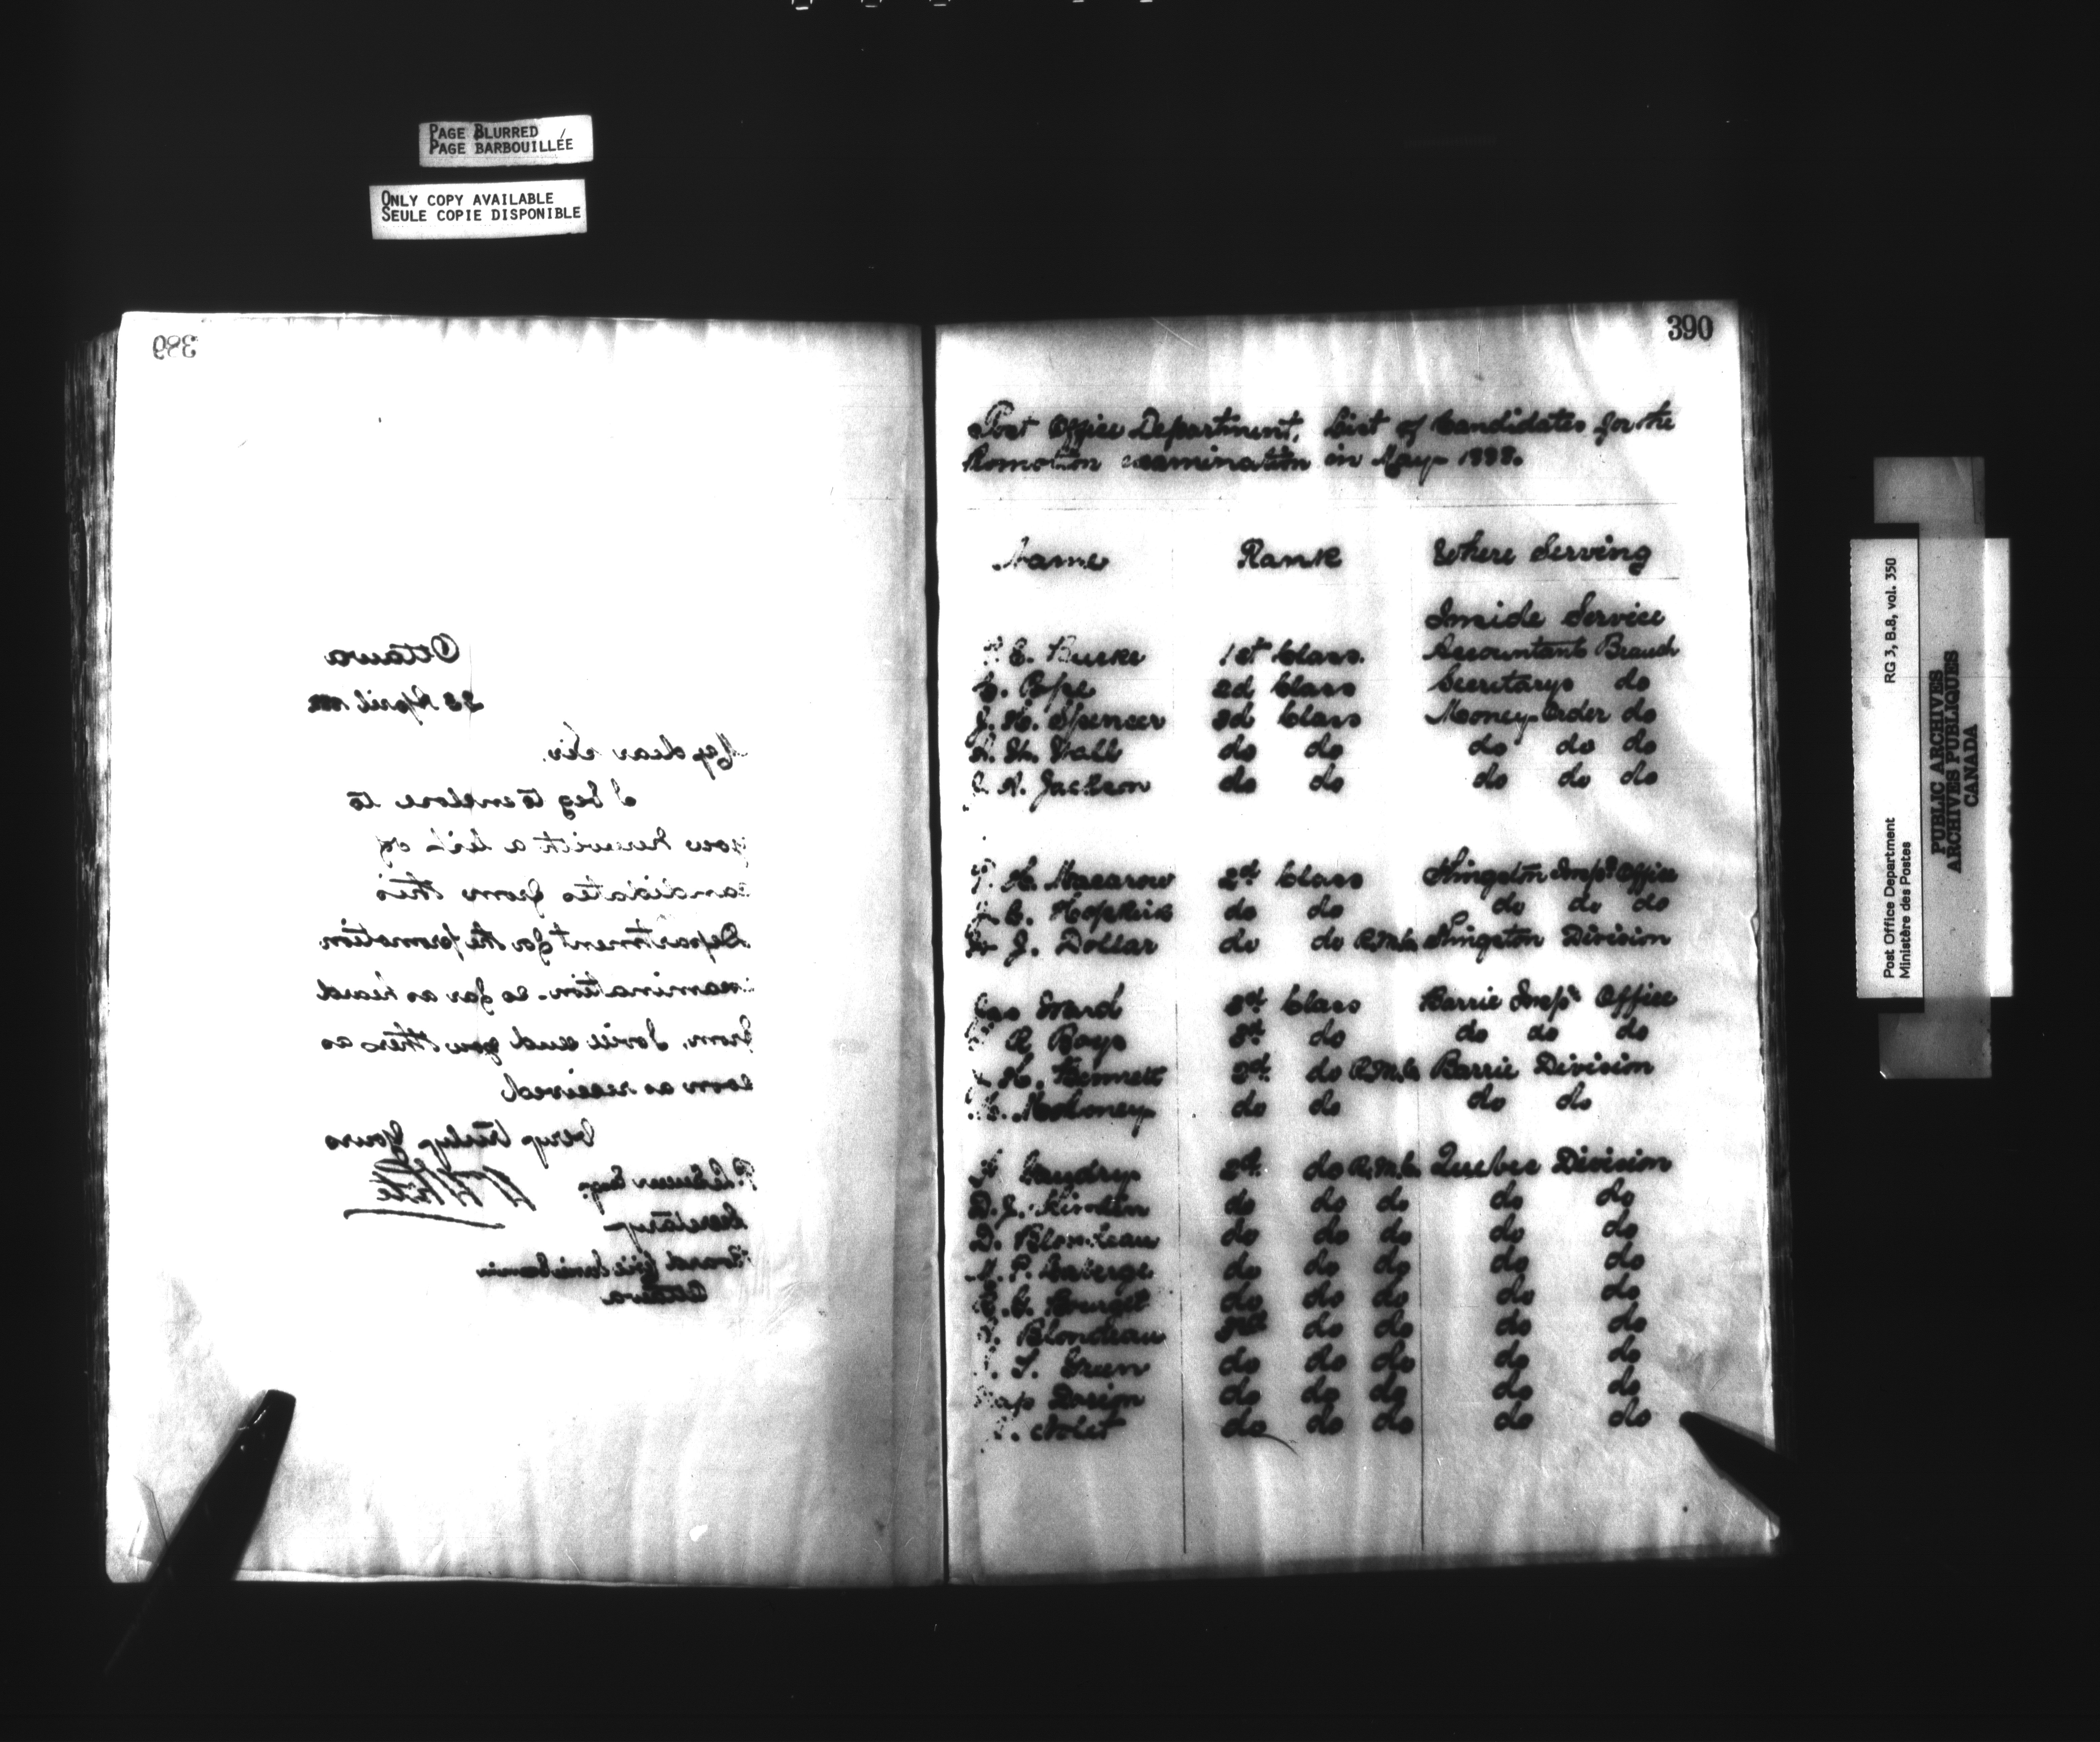 PAGE BLURRED
PAGE BARBOUILLÉE
ONLY COPY AVAILABLE
SEULE COPIE DISPONIBLE
389
Ottawa
April
My dear Sir,
I beg to enclose to
you herewith a list of
candidates from this
Department for the promotion
examination. so far as heard
from, I will send you others as
soon as received
Very truly yours
Secretary
Board Civil Service
Ottawa
390
Post Office Department. List of Candidates for the
Promotion examination in May 1888.
Name Rank Where Serving
Inside Service
E. Burke 1st Class. Accountants Branch
Pope 2d Class Secretarys do
J. H. Spencer 3d Class Money Order do
do do do do do
A. Jackson do do do do do
H. Macarow 2nd Class Kingston Insp's Office
C. Hopkirk do do do do do
J. Dollar do do R.M.C. Kingston Division
Ward Class Barrie Insp's Office
Boys do do do do
H. Bennett 2nd do R.M.C. Barrie Division
Moloney do do do do
2nd do R.M.C. Quebec Division
D. J. do do do do do
D. Blondeau do do do do do
M. P. do do do do do
do do do do do
Blondeau do do do do
Green do do do do do
Dorion do do do do do
Nolet do do do do do
Post Office Department RG 3, B.8, vol. 350
Ministère des Postes
PUBLIC ARCHIVES
ARCHIVES PUBLIQUES
CANADA